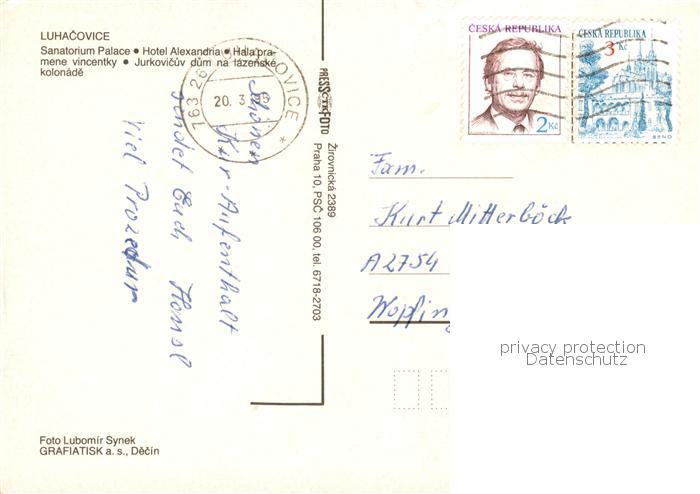 LUHAČOVICE
Sanatorium Palace ● Hotel Alexandria ● Hala pra-
mene vincentky ● Jurkovičův dům na lázeňské
kolonádě
763 26
20. 3.
OVICE *
Schönen
Kur-Aufenthalt
sendet Euch Hansl
Viel Prozedur
PRESSFOTO
Žirovnická 2389
Praha 10, PSČ 106 00, tel. 6718-2703
ČESKÁ REPUBLIKA
2 Kč
ČESKÁ REPUBLIKA
3 Kč
BRNO
Fam.
Kurt Mitterböck
A2754
Wopfing
privacy protection
Datenschutz
Foto Lubomír Synek
GRAFIATISK a. s., Děčín